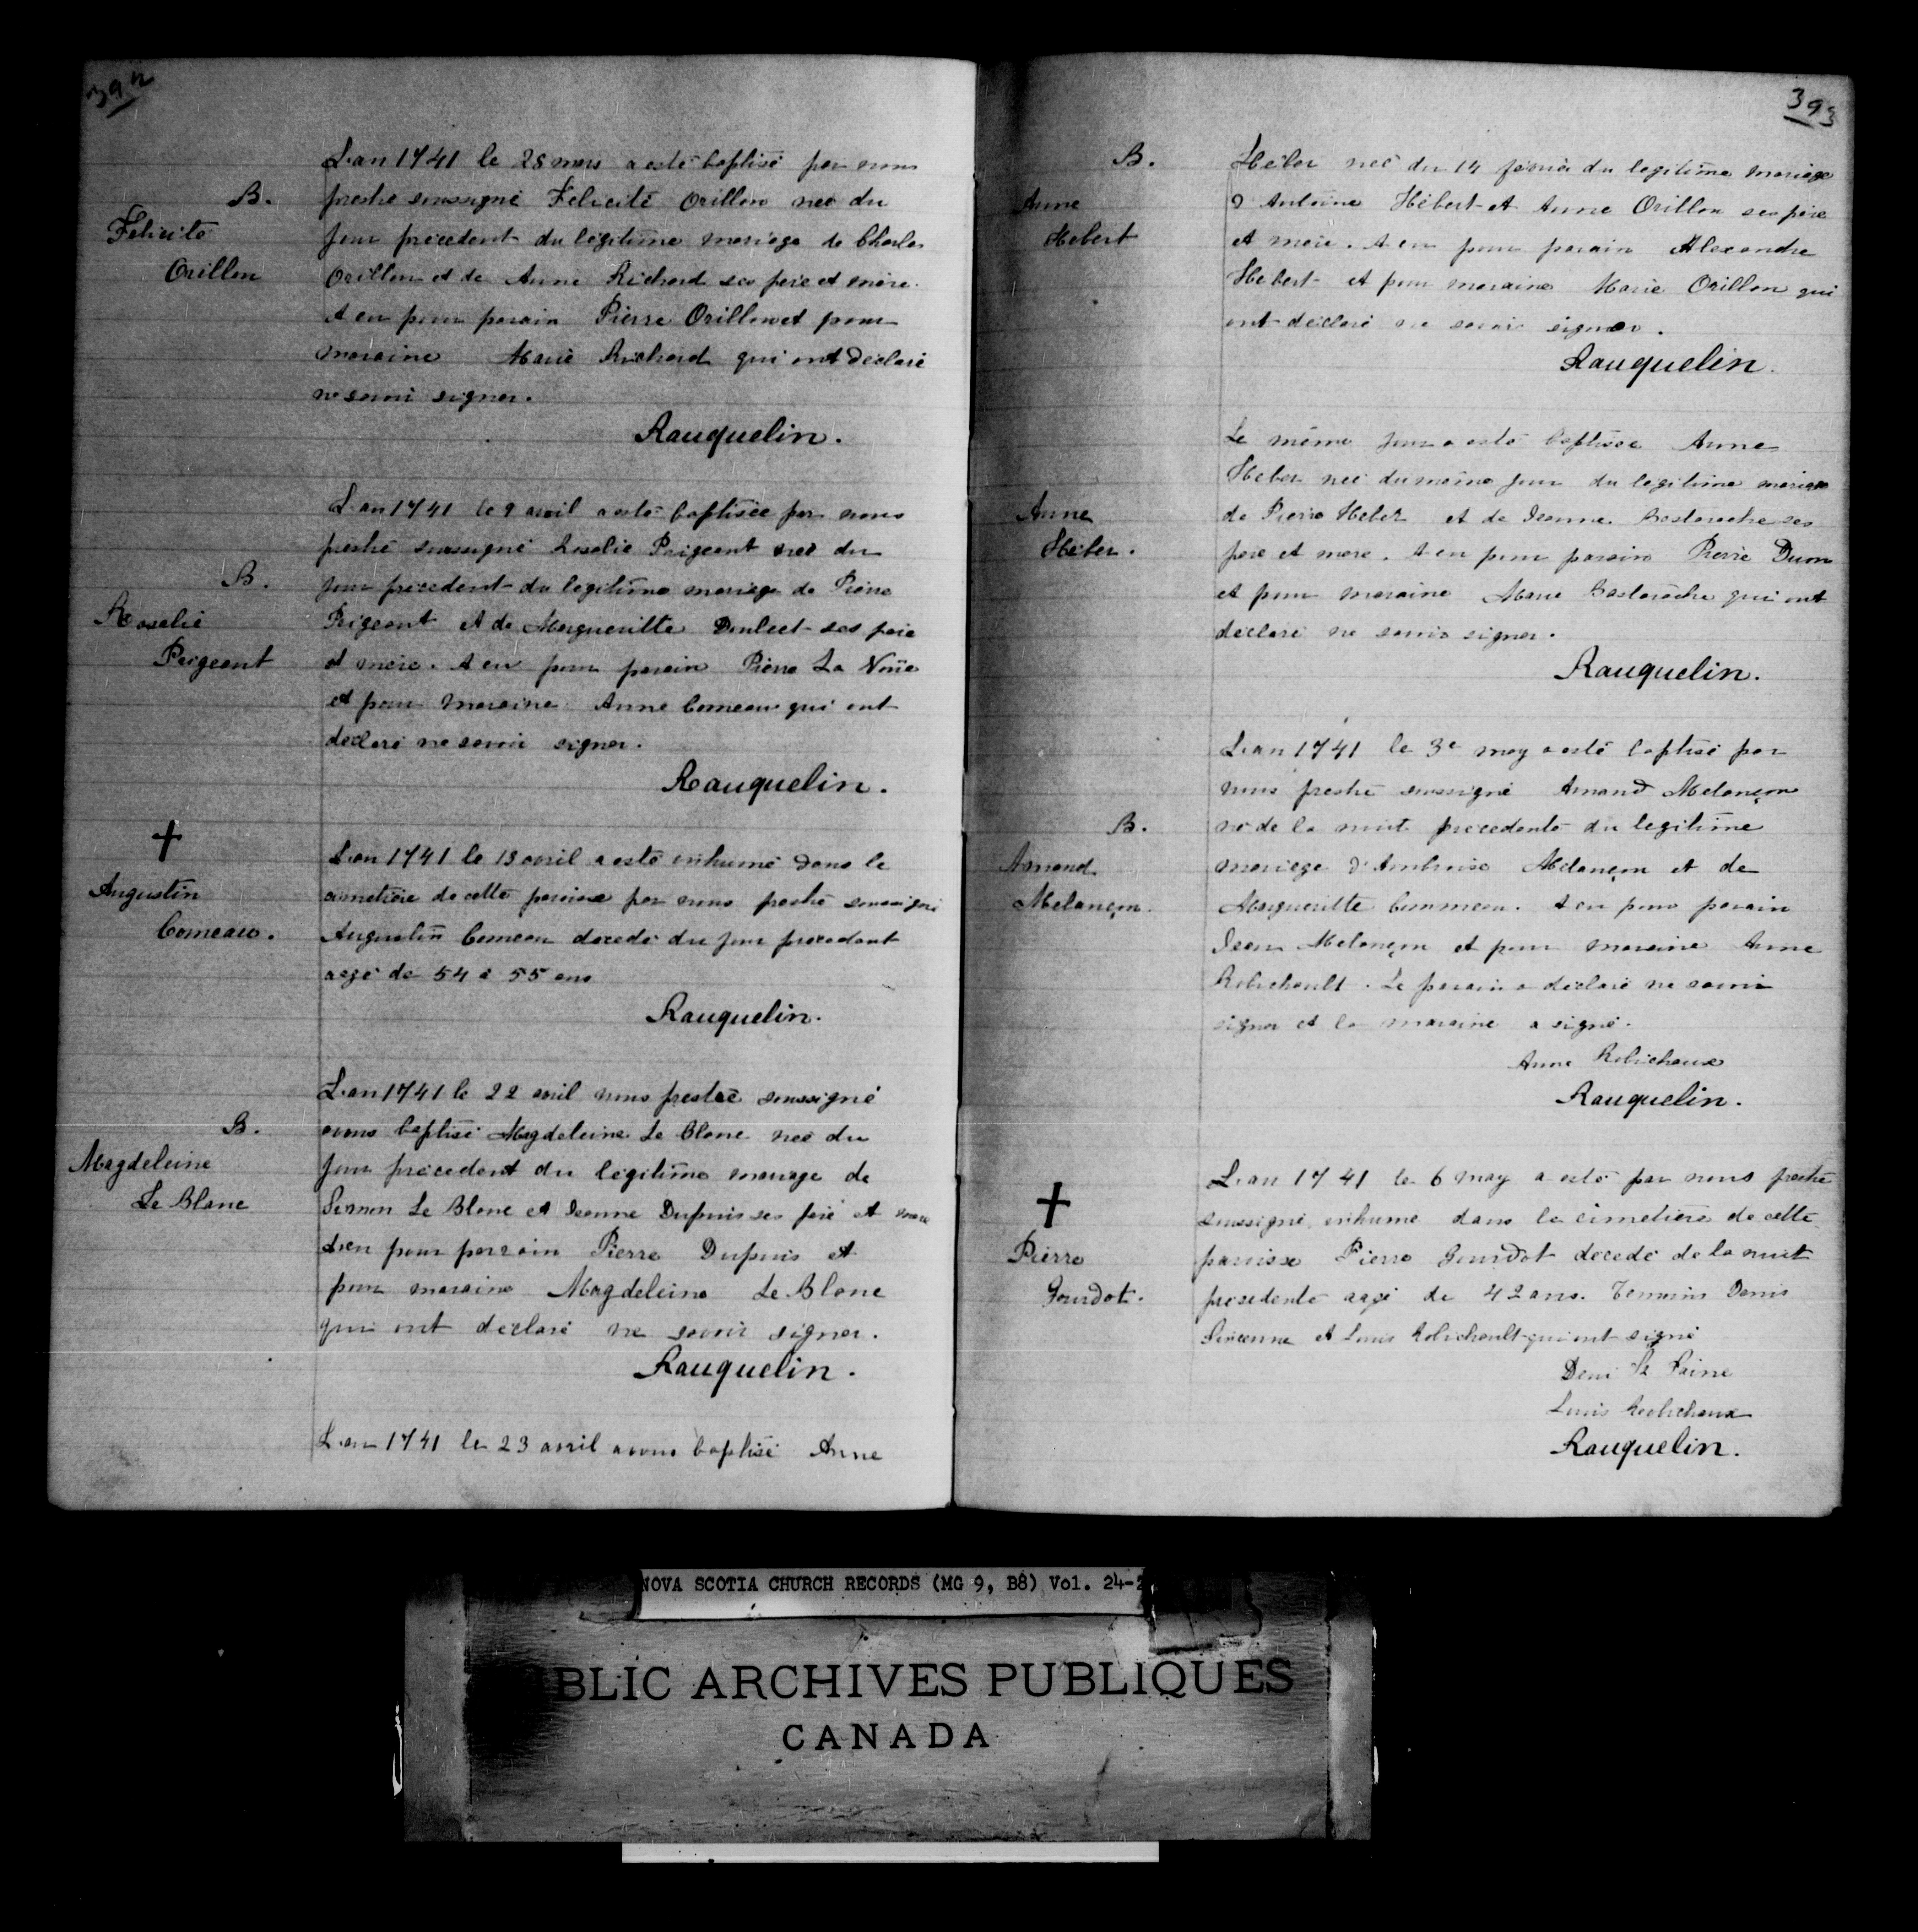 392
L'an 1741 le 28 mars a esté baptisé par nous
B.
prestre soussigné Felicité Orillon née du
Felicité
jour précédent du légitime mariage de Charles
Orillon
Orillon et de Anne Richard ses père et mère.
A eu pour parain Pierre Orillon et pour
maraine Marie Richard qui ont déclaré
ne savoir signer.
Rauquelin.
L'an 1741 le 9 avril a esté baptisée par nous
prestre soussigné Rosalie Prigeant née du
B.
jour précédent du legitime mariage de Pierre
Rosalie
Prigeant et de Margueritte Doulcet ses père
Prigeant
et mère. A eu pour parain Pierre La Noüe
et pour maraine Anne Comeau qui ont
declaré ne savoir signer.
Rauquelin.
+
L'an 1741 le 13 avril a esté inhumé dans le
Augustin
cimetière de cette paroisse par nous prestre soussigné
Comeau.
Augustin Comeau decedé du jour precedent
aagé de 54 à 55 ans
Rauquelin.
L'an 1741 le 22 avril nous prestre soussigné
B.
avons baptisé Magdeleine Le Blanc née du
Magdeleine
jour précedent du legitime mariage de
Le Blanc
Simon Le Blanc et Jeanne Dupuis ses père et mère
A eu pour parrain Pierre Dupuis et
pour maraine Magdeleine Le Blanc
qui ont declaré ne savoir signer.
Rauquelin.
L'an 1741 le 23 avril avons baptisé Anne
393
B.
Héber née du 14 février du legitime mariage
Anne
d'Antoine Hébert et Anne Orillon ses père
Hebert
et mère. A eu pour parain Alexandre
Hebert et pour maraine Marie Orillon qui
ont déclaré ne savoir signer.
Rauquelin.
Le même jour a esté baptisée Anne
Heber née du même jour du legitime mariage
Anne
de Pierre Heber et de Jeanne Bastarache ses
Héber.
père et mère. A eu pour parain Pierre Dum
et pour maraine Marie Bastarache qui ont
declaré ne savoir signer.
Rauquelin.
L'an 1741 le 3e may a esté baptisé par
nous prestre soussigné Amand Melançon
B.
né de la nuit precedente du legitime
Amand
mariage d'Ambroise Melançon et de
Melançon.
Margueritte Commeau. A eu pour parain
Jean Melançon et pour maraine Anne
Robichault. Le parain a declaré ne savoir
signer et la maraine a signé.
Anne Robichaux
Rauquelin.
L'an 1741 le 6 may a esté par nous prestre
+
soussigné inhumé dans le cimetière de cette
Pierre
paroisse Pierre Gourdot decedé de la nuit
Gourdot.
precedente aagé de 42 ans. Temoins Denis
et Louis Robichault qui ont signé
Deni
Louis Robichaux
Rauquelin.
NOVA SCOTIA CHURCH RECORDS (MG 9, B8) Vol. 24-2
BLIC ARCHIVES PUBLIQUES
CANADA